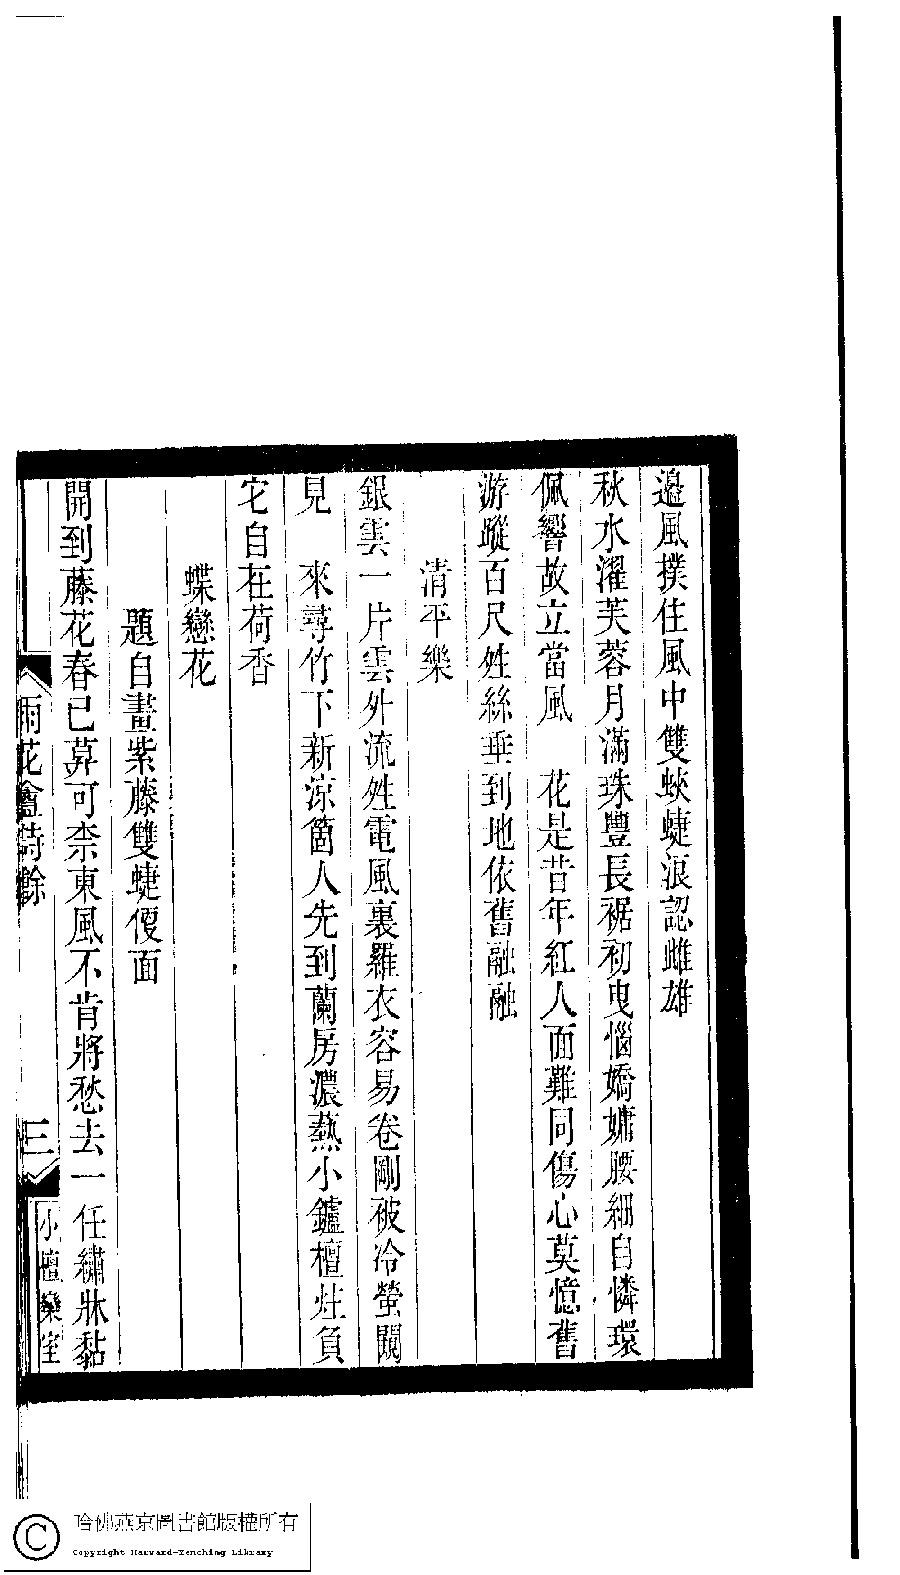 邉風撲住風中雙蛺蜨浪認雌雄
秋水濯芙蓉月滿珠豐長裾初曳惱嬌嫞腰細自憐環
佩響故立當風　花是昔年紅人面難同傷心莫憶舊
游蹤百尺姓絲垂到地依舊融融
清平樂
銀雲一片雲外流姓電風裏羅衣容易卷剛被冷螢闚
見　來尋竹下新涼箇人先到蘭房濃爇小鑪檀炷負
它自在荷香
蝶戀花
題自畫紫藤雙蜨便面
開到藤花春已莫可柰東風不肯將愁去一任繡牀黏
雨花盦詩餘
三
小檀欒室
哈佛燕京圖書館版權所有
Copyright Harvard-Yenching Library